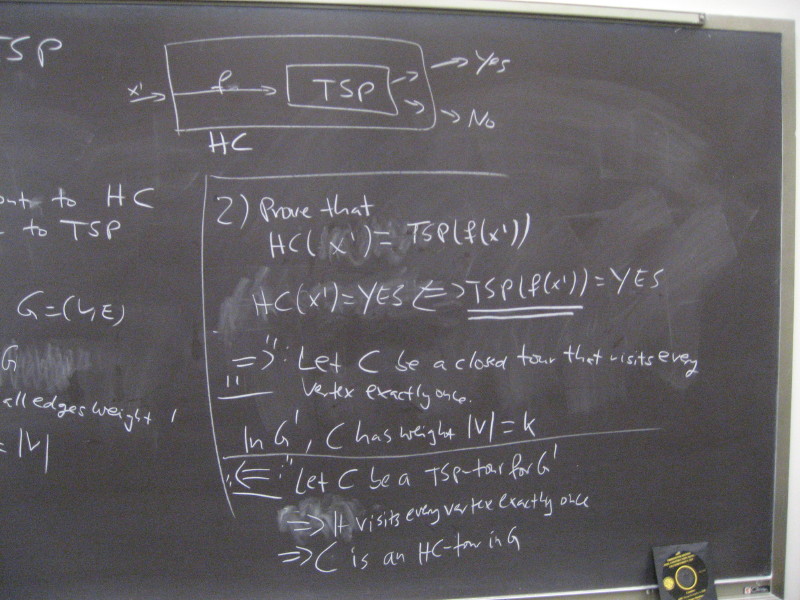 TSP
x' f TSP Yes
No
HC
to HC
to TSP
G=(V,E)
G
all edges weight 1
= |V|
2) Prove that
HC(x') = TSP(f(x'))
HC(x')=YES <=> TSP(f(x'))=YES
"=>": Let C be a closed tour that visits every
vertex exactly once.
In G', C has weight |V| = k
"<=": Let C be a TSP-tour for G'
=> It visits every vertex exactly once
=> C is an HC-tour in G